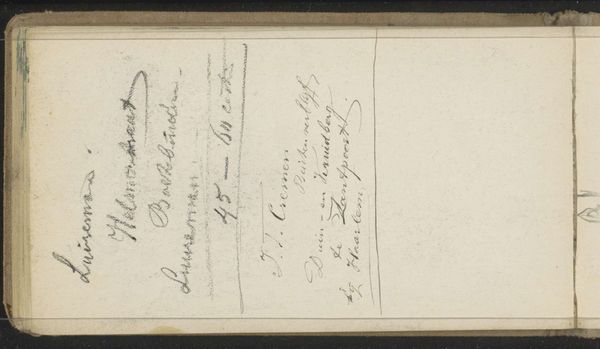 Luireman.
Helmstraat
Boekbinder
Luireman.
45 — 60 cent
J. J. Cremer
Buitenverblijf
Duin- en Kruidberg
te Zantpoort.
bij Haarlem.